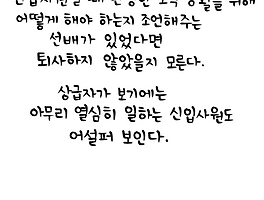 어떻게 해야 하는지 조언해주는
선배가 있었다면
퇴사하지 않았을지 모른다.
상급자가 보기에는
아무리 열심히 일하는 신입사원도
어설퍼 보인다.